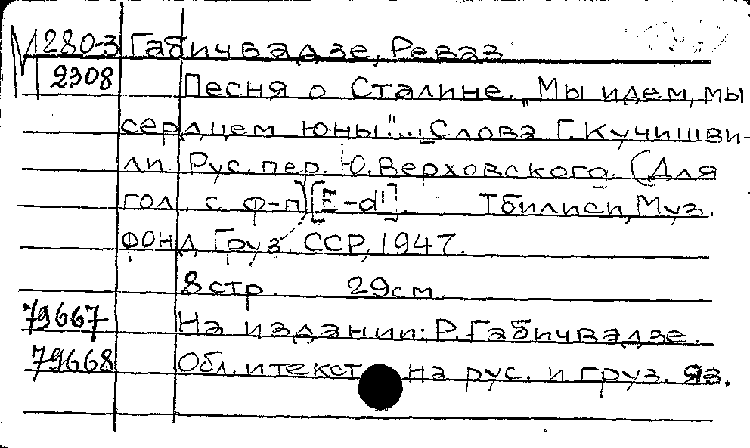 М 280-3 Габичвадзе, Реваз
2308 Песня о Сталине. „Мы идем, мы
сердцем юны"... Слова Г. Кучишви-
ли. Рус. пер. Ю. Верховского. (Для
гол. с ф-п) [E-d¹]. Тбилиси, Муз.
фонд Груз. ССР, 1947.
8 стр. 29 см.
79667 На издании: Р. Габичвадзе.
79668 Обл. и текст на рус. и груз. яз.